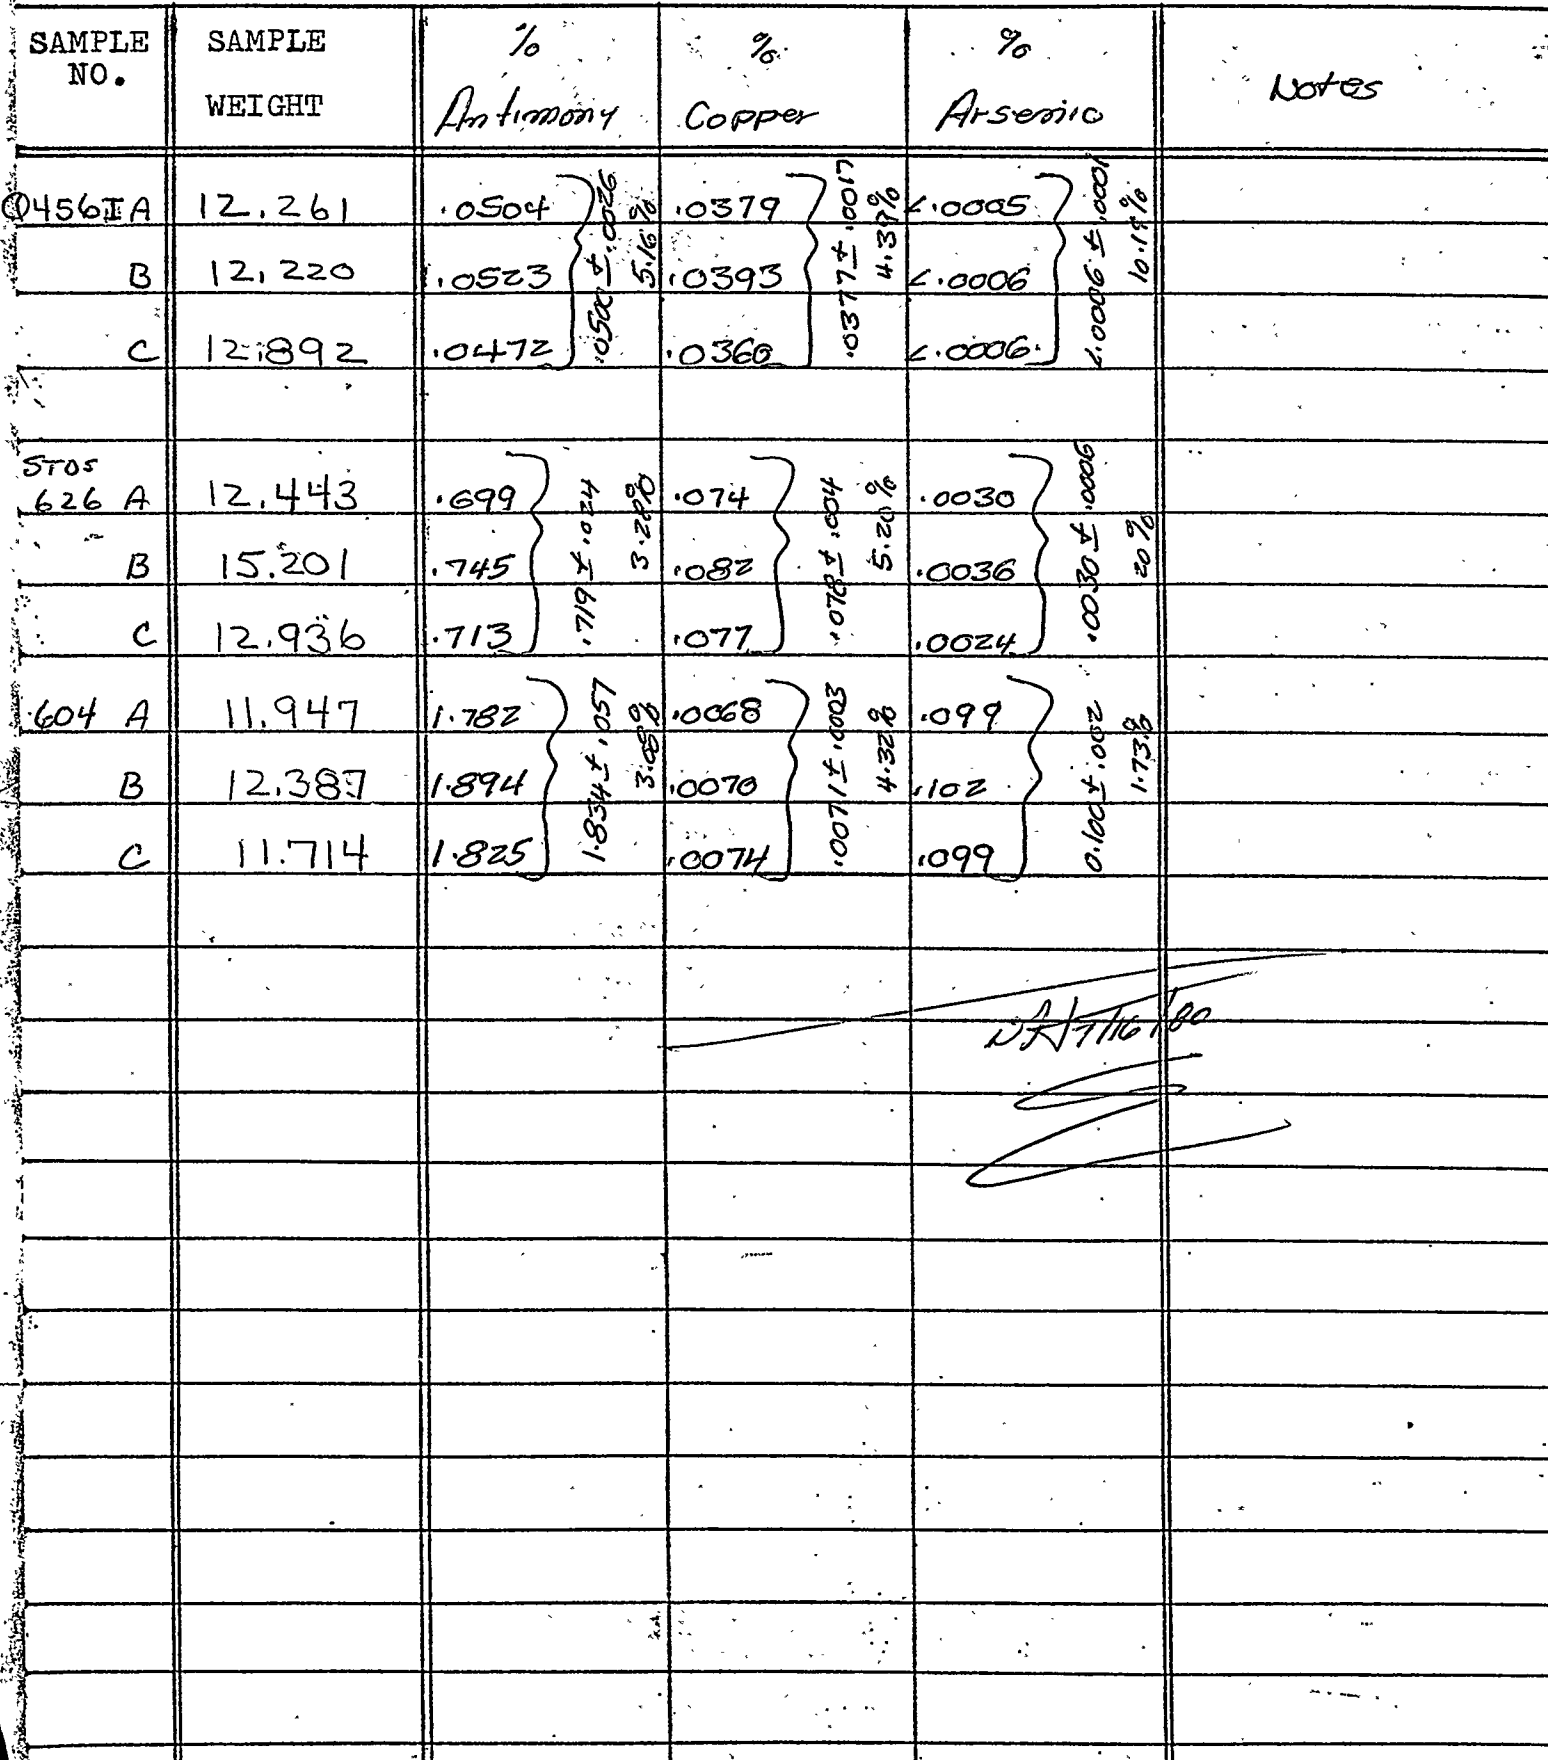 SAMPLE NO. SAMPLE WEIGHT % Antimony % Copper % Arsenic Notes
Q456IA 12.261 .0504 .0379 <.0005
B 12.220 .0523 .0393 <.0006
C 12.892 .0472 .0360 <.0006
.0500 ± .0026 5.16% .0377 ± .0017 4.39% <.0006 ± .0001 10.19%
STDS
626 A 12.443 .699 .074 .0030
B 15.201 .745 .082 .0036
C 12.936 .713 .077 .0024
.719 ± .024 3.28% .078 ± .004 5.20% .0030 ± .0006 20%
604 A 11.947 1.782 .0068 .099
B 12.387 1.894 .0070 .102
C 11.714 1.825 .0074 .099
1.834 ± .057 3.09% .0071 ± .0003 4.32% 0.100 ± .002 1.73%
7/16/80